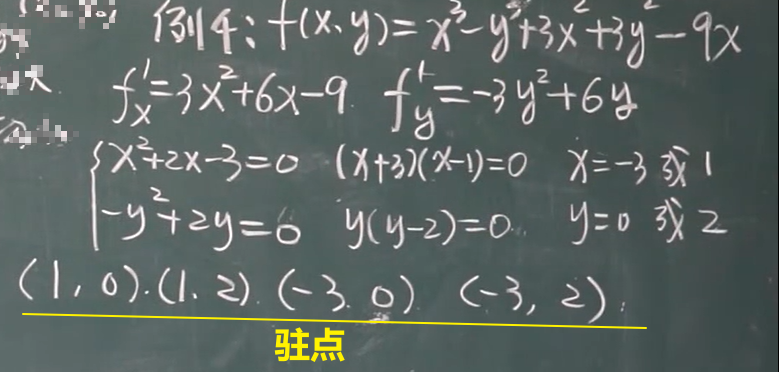 例4: f(x、y)=x³-y³+3x²+3y²-9x
f'ₓ=3x²+6x-9 f'y=-3y²+6y
{x²+2x-3=0 (x+3)(x-1)=0 x=-3或1
-y²+2y=0 y(y-2)=0. y=0或2
(1,0).(1.2).(-3.0) (-3,2).
驻点